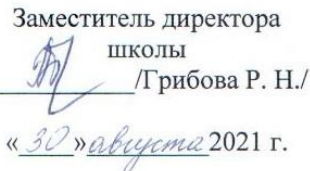 Заместитель директора
школы
/Грибова Р. Н./
«30»августа2021 г.